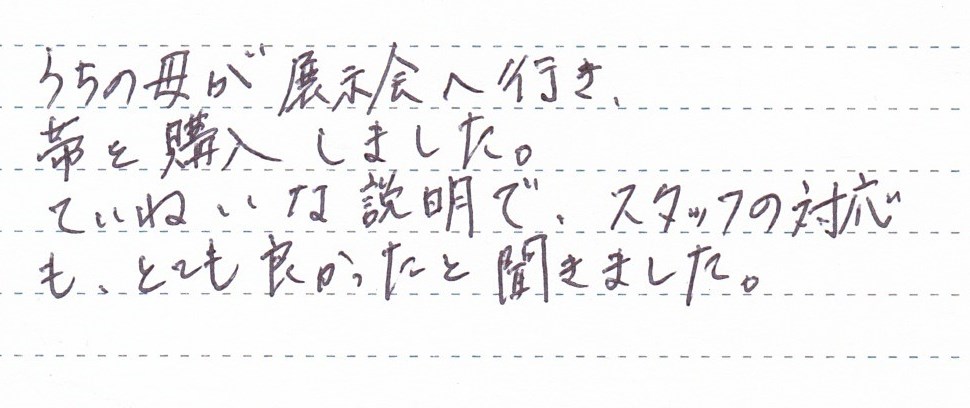 うちの母が展示会へ行き、
帯を購入しました。
ていねいな説明で、スタッフの対応
も、とても良かったと聞きました。